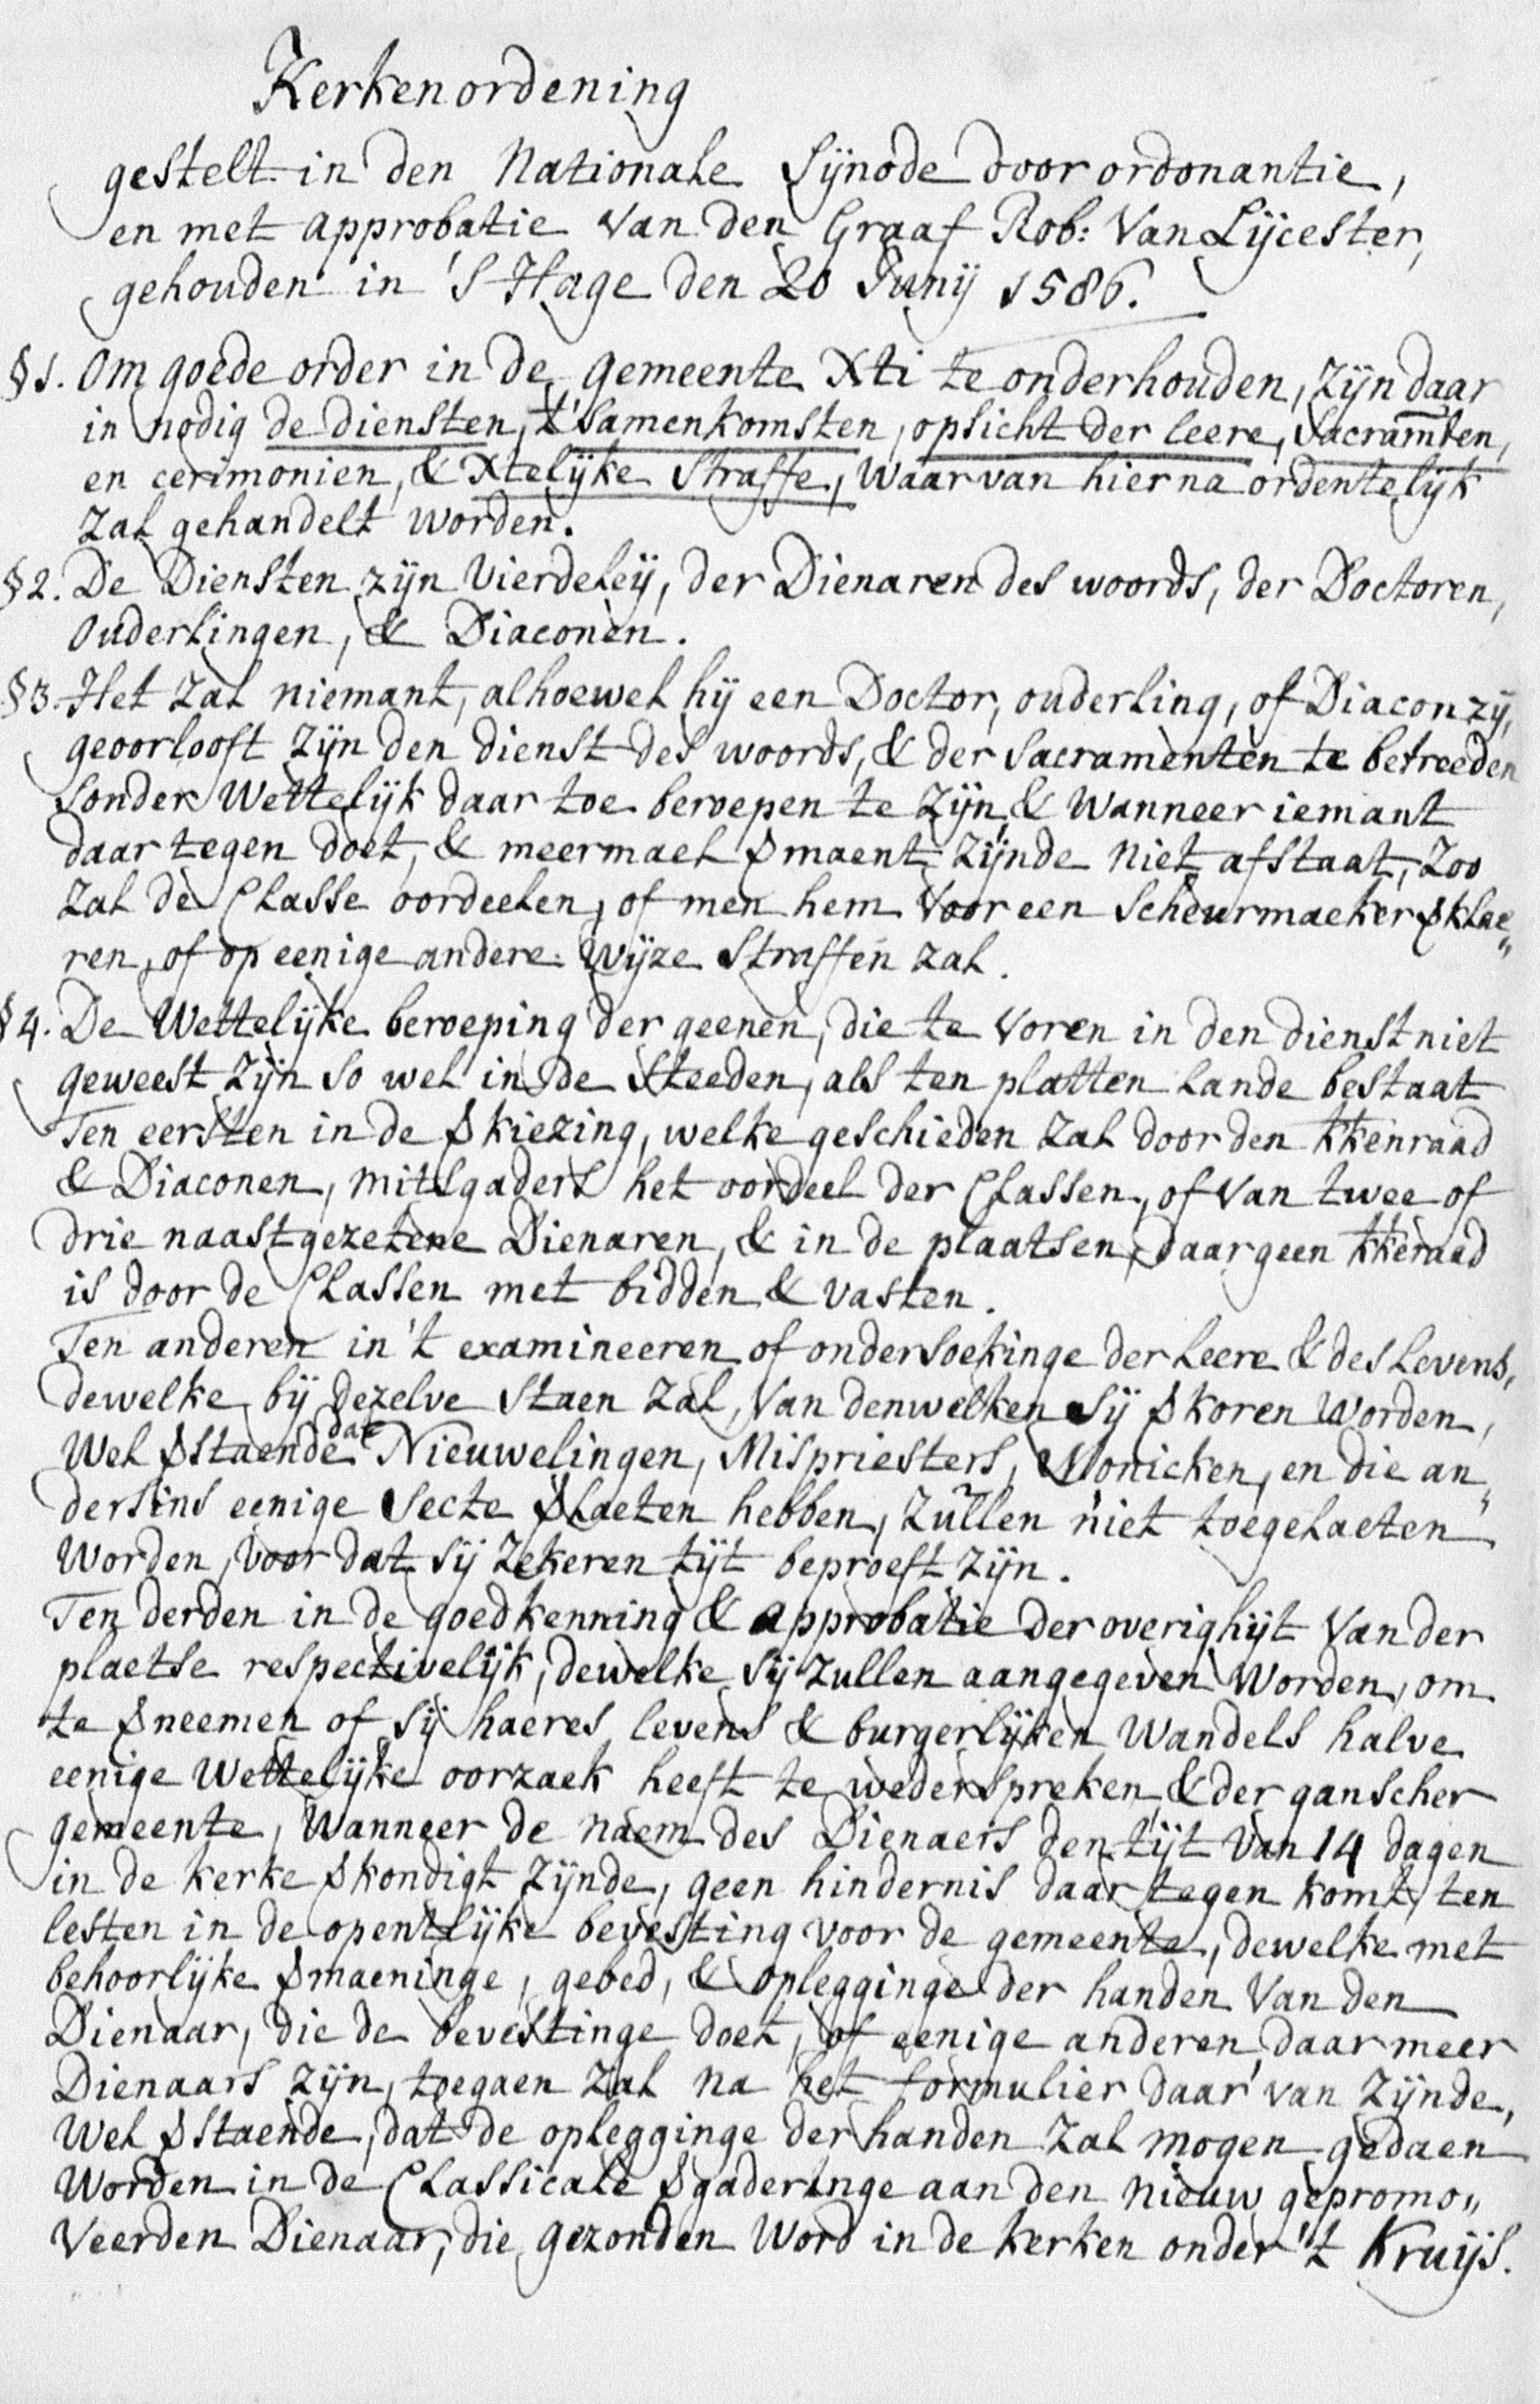 Kerkenordening
gestelt in den Nationale Sÿnode door ordonantie,
en met approbatie van den Graaf Rob: van Lÿcester,
gehouden in 's Hage den 20 Junÿ 1586.
§1. Om goede order in de gemeente Xti te onderhouden, zÿn daar
in nodig de diensten, t'samenkomsten, opsicht der leere, sacram̅ten,
en cerimonien, & Xtelÿke straffe, waarvan hierna ordentelÿk
zal gehandelt worden.
§2. De Diensten zÿn vierdeleÿ, der Dienaren des woords, der Doctoren,
ouderlingen, & Diaconen.
§3. Het zal niemant, alhoewel hÿ een Doctor, ouderling, of Diacon zÿ,
geoorlooft zÿn den dienst des woords, & der sacramenten te betreeden
sonder wettelÿk daar toe beroepen te zÿn & wanneer iemant
daar tegen doet, & meermael ꝟmaent zÿnde niet afstaat, zoo
zal de Classe oordeelen, of men hem voor een scheurmaeker ꝟklae„
ren, of op eenige andere wÿze straffen zal.
§4. De wettelÿke beroeping der geenen, die te voren in den dienst niet
geweest zÿn so wel in de steeden, als ten platten lande bestaat
Ten eersten in de ꝟkiezing, welke geschieden zal door den kkenraad
& Diaconen, mitsgaders het oordeel der Classen, of van twee of
drie naastgezetene Dienaren, & in de plaatsen, daar geen kkeraad
is door de Classen met bidden & vasten.
Ten anderen in 't examineeren of ondersoekinge der leere & des levens,
dewelke bÿ dezelve staen zal, van denwelken sÿ ꝟkoren worden,
wel ꝟstaende dat Nieuwelingen, Mispriesters, Monicken, en die an„
dersins eenige secte ꝟlaeten hebben, zullen niet toegelaeten
worden, voor dat sÿ zekeren tÿt beproeft zÿn.
Ten derden in de goedkenning & approbatie der overighÿt van der
plaetse respectivelÿk, dewelke sÿ zullen aangegeven worden, om
te ꝟneemen of sÿ haeres levens & burgerlÿken wandels halve
eenige wettelÿke oorzaek heeft te wederspreken & der ganscher
gemeente, wanneer de naem des Dienaers den tÿt van 14 dagen
in de kerke ꝟkondigt zÿnde, geen hindernis daar tegen komt, ten
lesten in de opentlÿke bevesting voor de gemeente, dewelke met
behoorlÿke ꝟmaeninge, gebed, & oplegginge der handen van den
Dienaar, die de bevestinge doet, of eenige anderen, daar meer
Dienaars zÿn, toegaen zal na het formulier daar van zÿnde,
wel ꝟstaende, dat de oplegginge der handen zal mogen gedaen
worden in de Classicale ꝟgaderinge aan den nieuw gepromo„
veerden Dienaar, die gezonden word in de kerken onder 't Kruÿs.